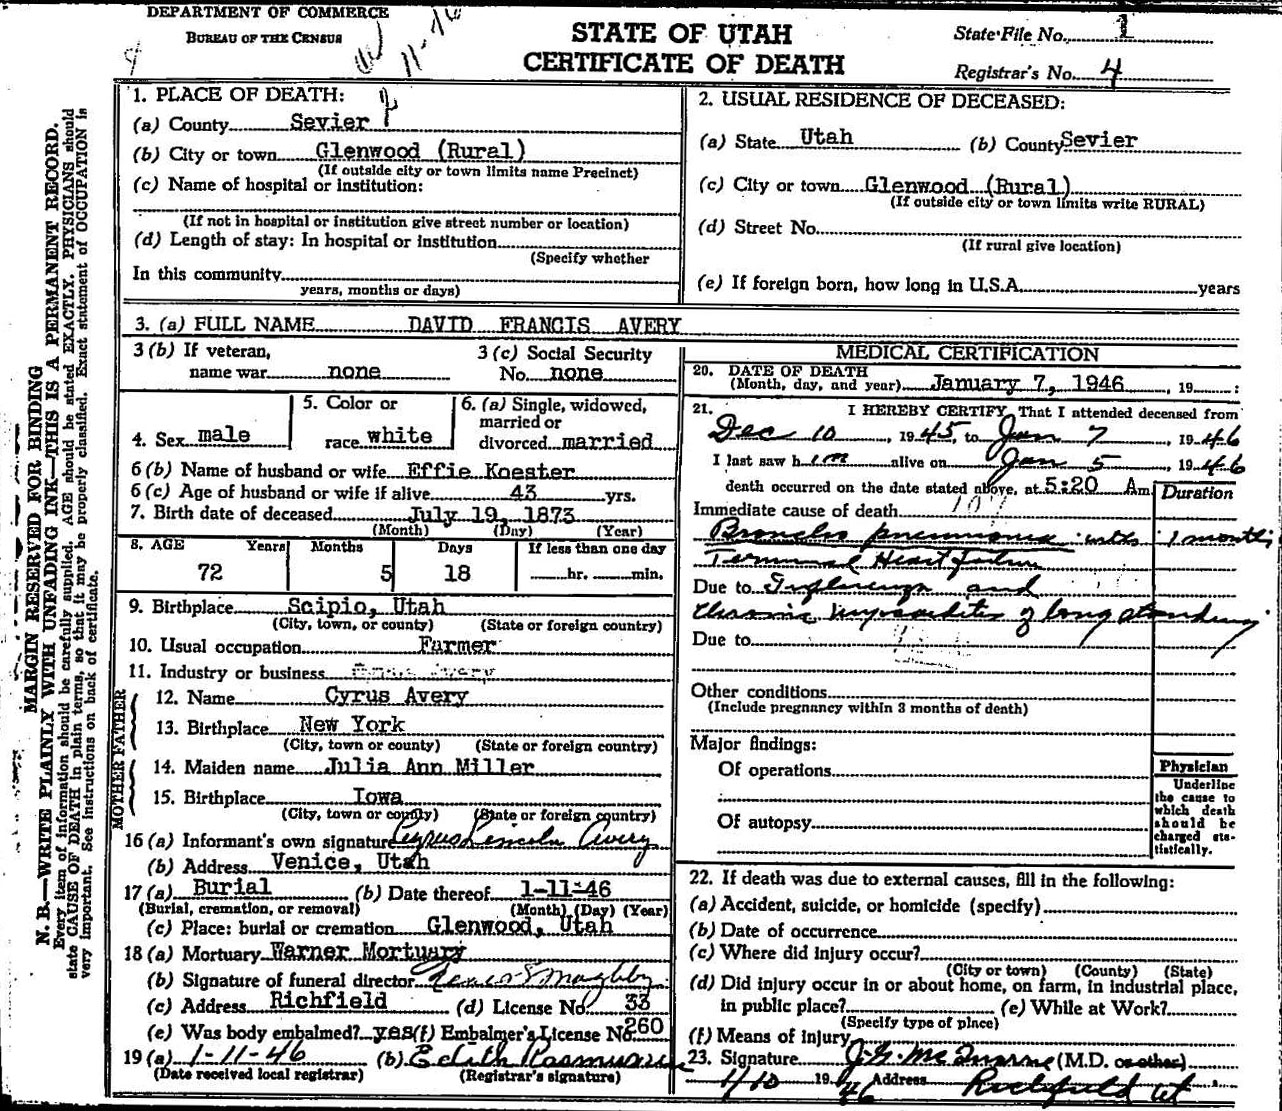 DEPARTMENT OF COMMERCE
BUREAU OF THE CENSUS
11-76
STATE OF UTAH
CERTIFICATE OF DEATH
State File No. 1
Registrar's No. 4
MARGIN RESERVED FOR BINDING
N. B.—WRITE PLAINLY WITH UNFADING INK—THIS IS A PERMANENT RECORD.
Every item of information should be carefully supplied. AGE should be stated EXACTLY. PHYSICIANS should
state CAUSE OF DEATH in plain terms, so that it may be properly classified. Exact statement of OCCUPATION is
very important. See instructions on back of certificate.
1. PLACE OF DEATH:
(a) County Sevier
(b) City or town Glenwood (Rural)
(If outside city or town limits name Precinct)
(c) Name of hospital or institution:
(If not in hospital or institution give street number or location)
(d) Length of stay: In hospital or institution
(Specify whether
In this community
years, months or days)
2. USUAL RESIDENCE OF DECEASED:
(a) State Utah (b) County Sevier
(c) City or town Glenwood (Rural)
(If outside city or town limits write RURAL)
(d) Street No.
(If rural give location)
(e) If foreign born, how long in U.S.A. years
3. (a) FULL NAME DAVID FRANCIS AVERY
3 (b) If veteran,
name war none
3 (c) Social Security
No. none
4. Sex male
5. Color or
race white
6. (a) Single, widowed,
married or
divorced married
6 (b) Name of husband or wife Effie Koester
6 (c) Age of husband or wife if alive 43 yrs.
7. Birth date of deceased July 19, 1873
(Month) (Day) (Year)
8. AGE Years Months Days If less than one day
72 5 18 hr. min.
9. Birthplace Scipio, Utah
(City, town, or county) (State or foreign country)
10. Usual occupation Farmer
11. Industry or business
FATHER
12. Name Cyrus Avery
13. Birthplace New York
(City, town or county) (State or foreign country)
MOTHER
14. Maiden name Julia Ann Miller
15. Birthplace Iowa
(City, town or county) (State or foreign country)
16 (a) Informant's own signature Cyrus Lincoln Avery
(b) Address Venice, Utah
17 (a) Burial (b) Date thereof 1-11-46
(Burial, cremation, or removal) (Month) (Day) (Year)
(c) Place: burial or cremation Glenwood, Utah
18 (a) Mortuary Warner Mortuary
(b) Signature of funeral director
(c) Address Richfield (d) License No. 33
(e) Was body embalmed? yes (f) Embalmer's License No. 260
19 (a) 1-11-46 (b) Edith Rasmussen
(Date received local registrar) (Registrar's signature)
MEDICAL CERTIFICATION
20. DATE OF DEATH
(Month, day, and year) January 7, 1946, 19 :
21. I HEREBY CERTIFY, That I attended deceased from
Dec 10, 1945, to Jan 7, 1946
I last saw him alive on Jan 5, 1946
death occurred on the date stated above, at 5:20 Am
Duration
Immediate cause of death 107
Broncho pneumonia with 1 month
Terminal Heart failure
Due to Influenza and
chronic myocarditis of long standing
Due to
Other conditions
(Include pregnancy within 3 months of death)
Major findings:
Of operations
Of autopsy
Physician
Underline
the cause to
which death
should be
charged sta-
tistically.
22. If death was due to external causes, fill in the following:
(a) Accident, suicide, or homicide (specify)
(b) Date of occurrence
(c) Where did injury occur?
(City or town) (County) (State)
(d) Did injury occur in or about home, on farm, in industrial place,
in public place? (e) While at Work?
(Specify type of place)
(f) Means of injury
23. Signature J. G. McQuarrie (M.D. or other)
1/10 1946 Address Richfield Ut